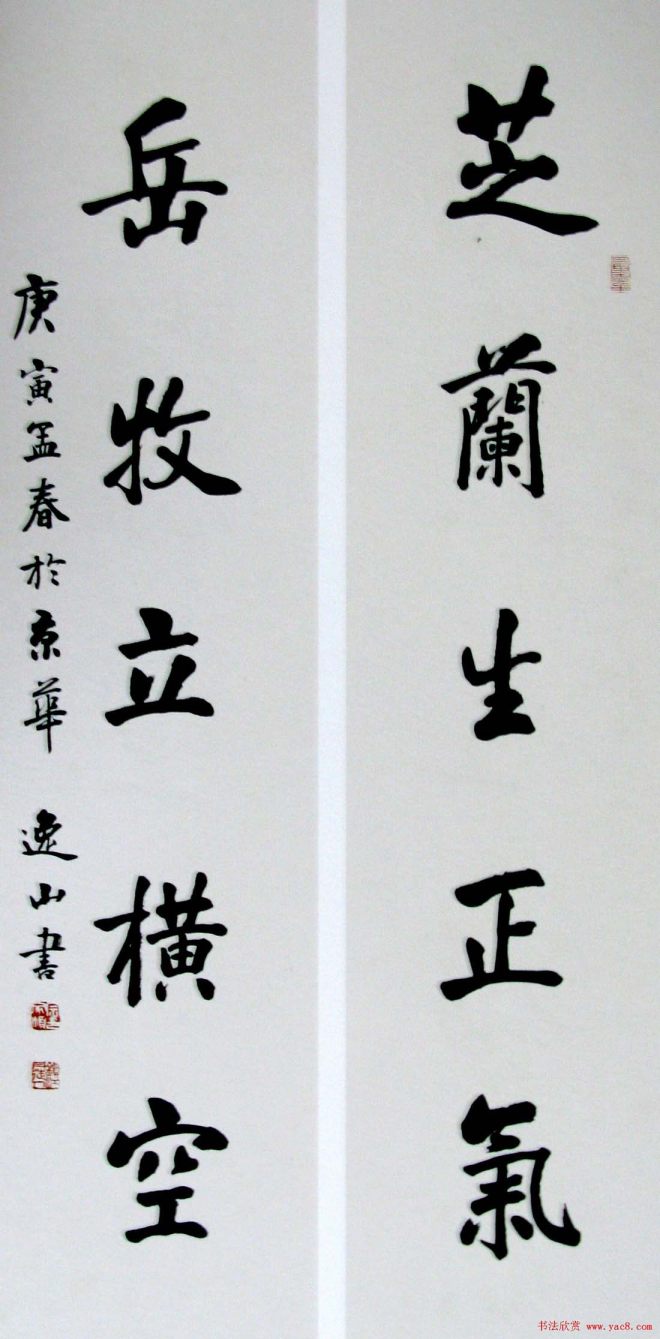 芝蘭生正氣
岳牧立橫空
庚寅孟春於京華 逸山書
书法欣赏 www.yac8.com